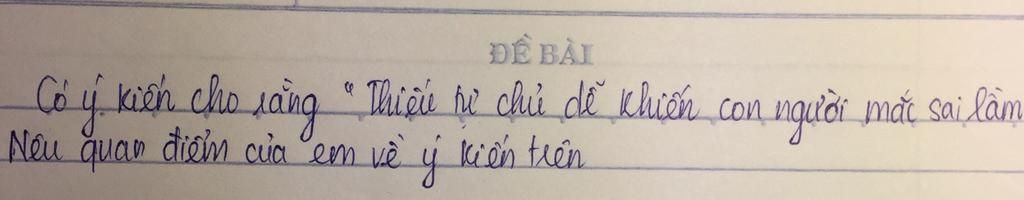 ĐỀ BÀI
Có ý kiến cho rằng "Thiếu tự chủ dễ khiến con người mắc sai lầm
Nêu quan điểm của em về ý kiến trên